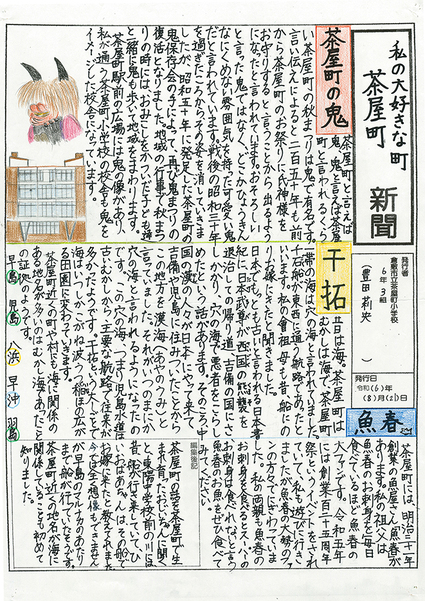 私の大好きな町
茶屋町
新聞
発行者
倉敷市立茶屋町小学校
6年3組
(豊田莉央)
発行日
令和(6)年
(8)月(2)日
茶屋町の鬼
茶屋町と言えば
鬼、鬼と言えば茶屋
町と言われるくら
い茶屋町の秋まつりは鬼で有名です。
言い伝えによると、二百五十年も前
から茶屋町のお祭りに
お守りする
になったと言われています。おそろしい
と言った鬼ではなく、どこかなつかしく
なにくめない雰囲気を持った可愛い鬼
と言われています。戦後の昭和三十年
を過ぎたころからその姿を消していま
したが、昭和五十年に発足した茶屋町の
鬼保存会の手によって、再び鬼まつりの
復活となりました。地域の行事で秋まつ
りの時には、おみこしをかついだ子ども達
と一緒に鬼も歩いて地域をまわります。
茶屋町駅前の広場には鬼の像があり、
私が通う茶屋町小学校の校舎も鬼を
イメージした校舎になっています。
干拓
昔は海。茶屋町は
むかしは海で、茶屋町
一帯の海は穴の海と言われていました。
千石船が東西に通う航路であったと
言います。私の曽祖母も昔、船にの
り、お嫁にきたと聞きました。
日本でもっとも古いと言われる日本書
紀に、日本武尊が西国の熊襲を
退治しての帰り道、吉備の国にさ
しかかり、穴の海で悪者をこらし
めたという話があります。そのころ
国の漢の人々が日本にやって来て、
吉備や児島に住みついたことから
この地方を漢海(あやのうみ)と
言っていました。それがいつのまにか
穴の海、と言われるようになったの
です。この穴の海、つまり児島水道は
古くから主要な航路で往来が
多かったようです。干拓ということで
海はいつしかこがね波うつ稲ほの広が
る田園に変わっていきます。
茶屋町近くの町や村にも海に関係の
ある地名が多いのはむかし海であったこと
の証拠のようです。
早島 箕島 八浜 早沖 羽島
魚春
茶屋町には、明治三十年
創業の魚屋さん魚春が
あります。私の祖父は
魚春のお刺身を毎日
食べているほど魚春の
大ファンです。令和五年
には創業百二十五周年
祭というイベントをされ
ていて、私も遊びに行き
ましたが魚春の大勢のファ
ンの方々でにぎわっていま
した。私の両親も魚春の
お刺身を食べるとスーパーの
お刺身は食べれないと言う
魚春のお魚をぜひ食べて
みてください。
編集後記
茶屋町の話を茶屋町で生
まれ育ったおじいちゃんに聞く
と、東陽中学校前の川には
昔、船で行き来していて、ひ
いおばあちゃんは、その船で
お嫁に来たと教えてくれました。
今では全く想像もできません
が、早島のマルナカのあたり
まで船が行っていたそうです。
茶屋町近くの地名が海に
関係していることも初めて
知りました。